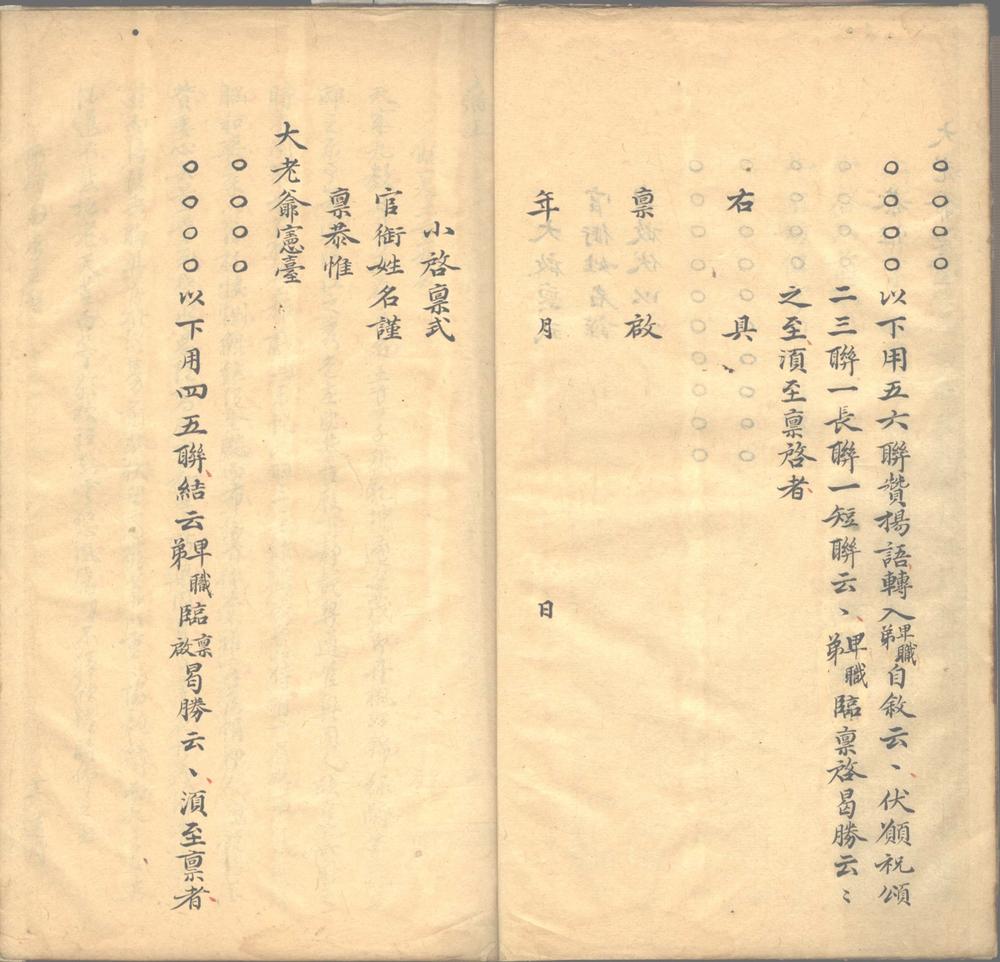 ○○○○
○○○○以下用五六聯贊揚語轉入卑職弟自敘云、伏願祝頌
二三聯一長聯一短聯云、卑職弟臨稟啓曷勝云〻
之至湏至稟啓者
右具
稟啟
年月日
小啓稟式
官銜姓名謹
稟恭惟
大老爺憲臺
○○○○
○○○○以下用四五聯結云卑職弟臨稟啟曷勝云、湏至稟者